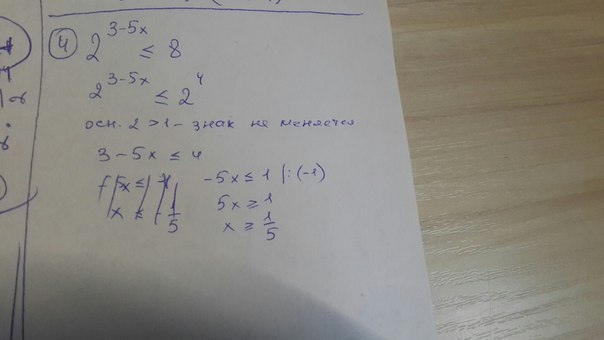 ④ 2^{3-5x} ≤ 8
2^{3-5x} ≤ 2^4
осн. 2 > 1 - знак не меняется
3 - 5x ≤ 4
-5x ≤ 1 |:(-1)
5x ≥ 1
x ≥ 1/5